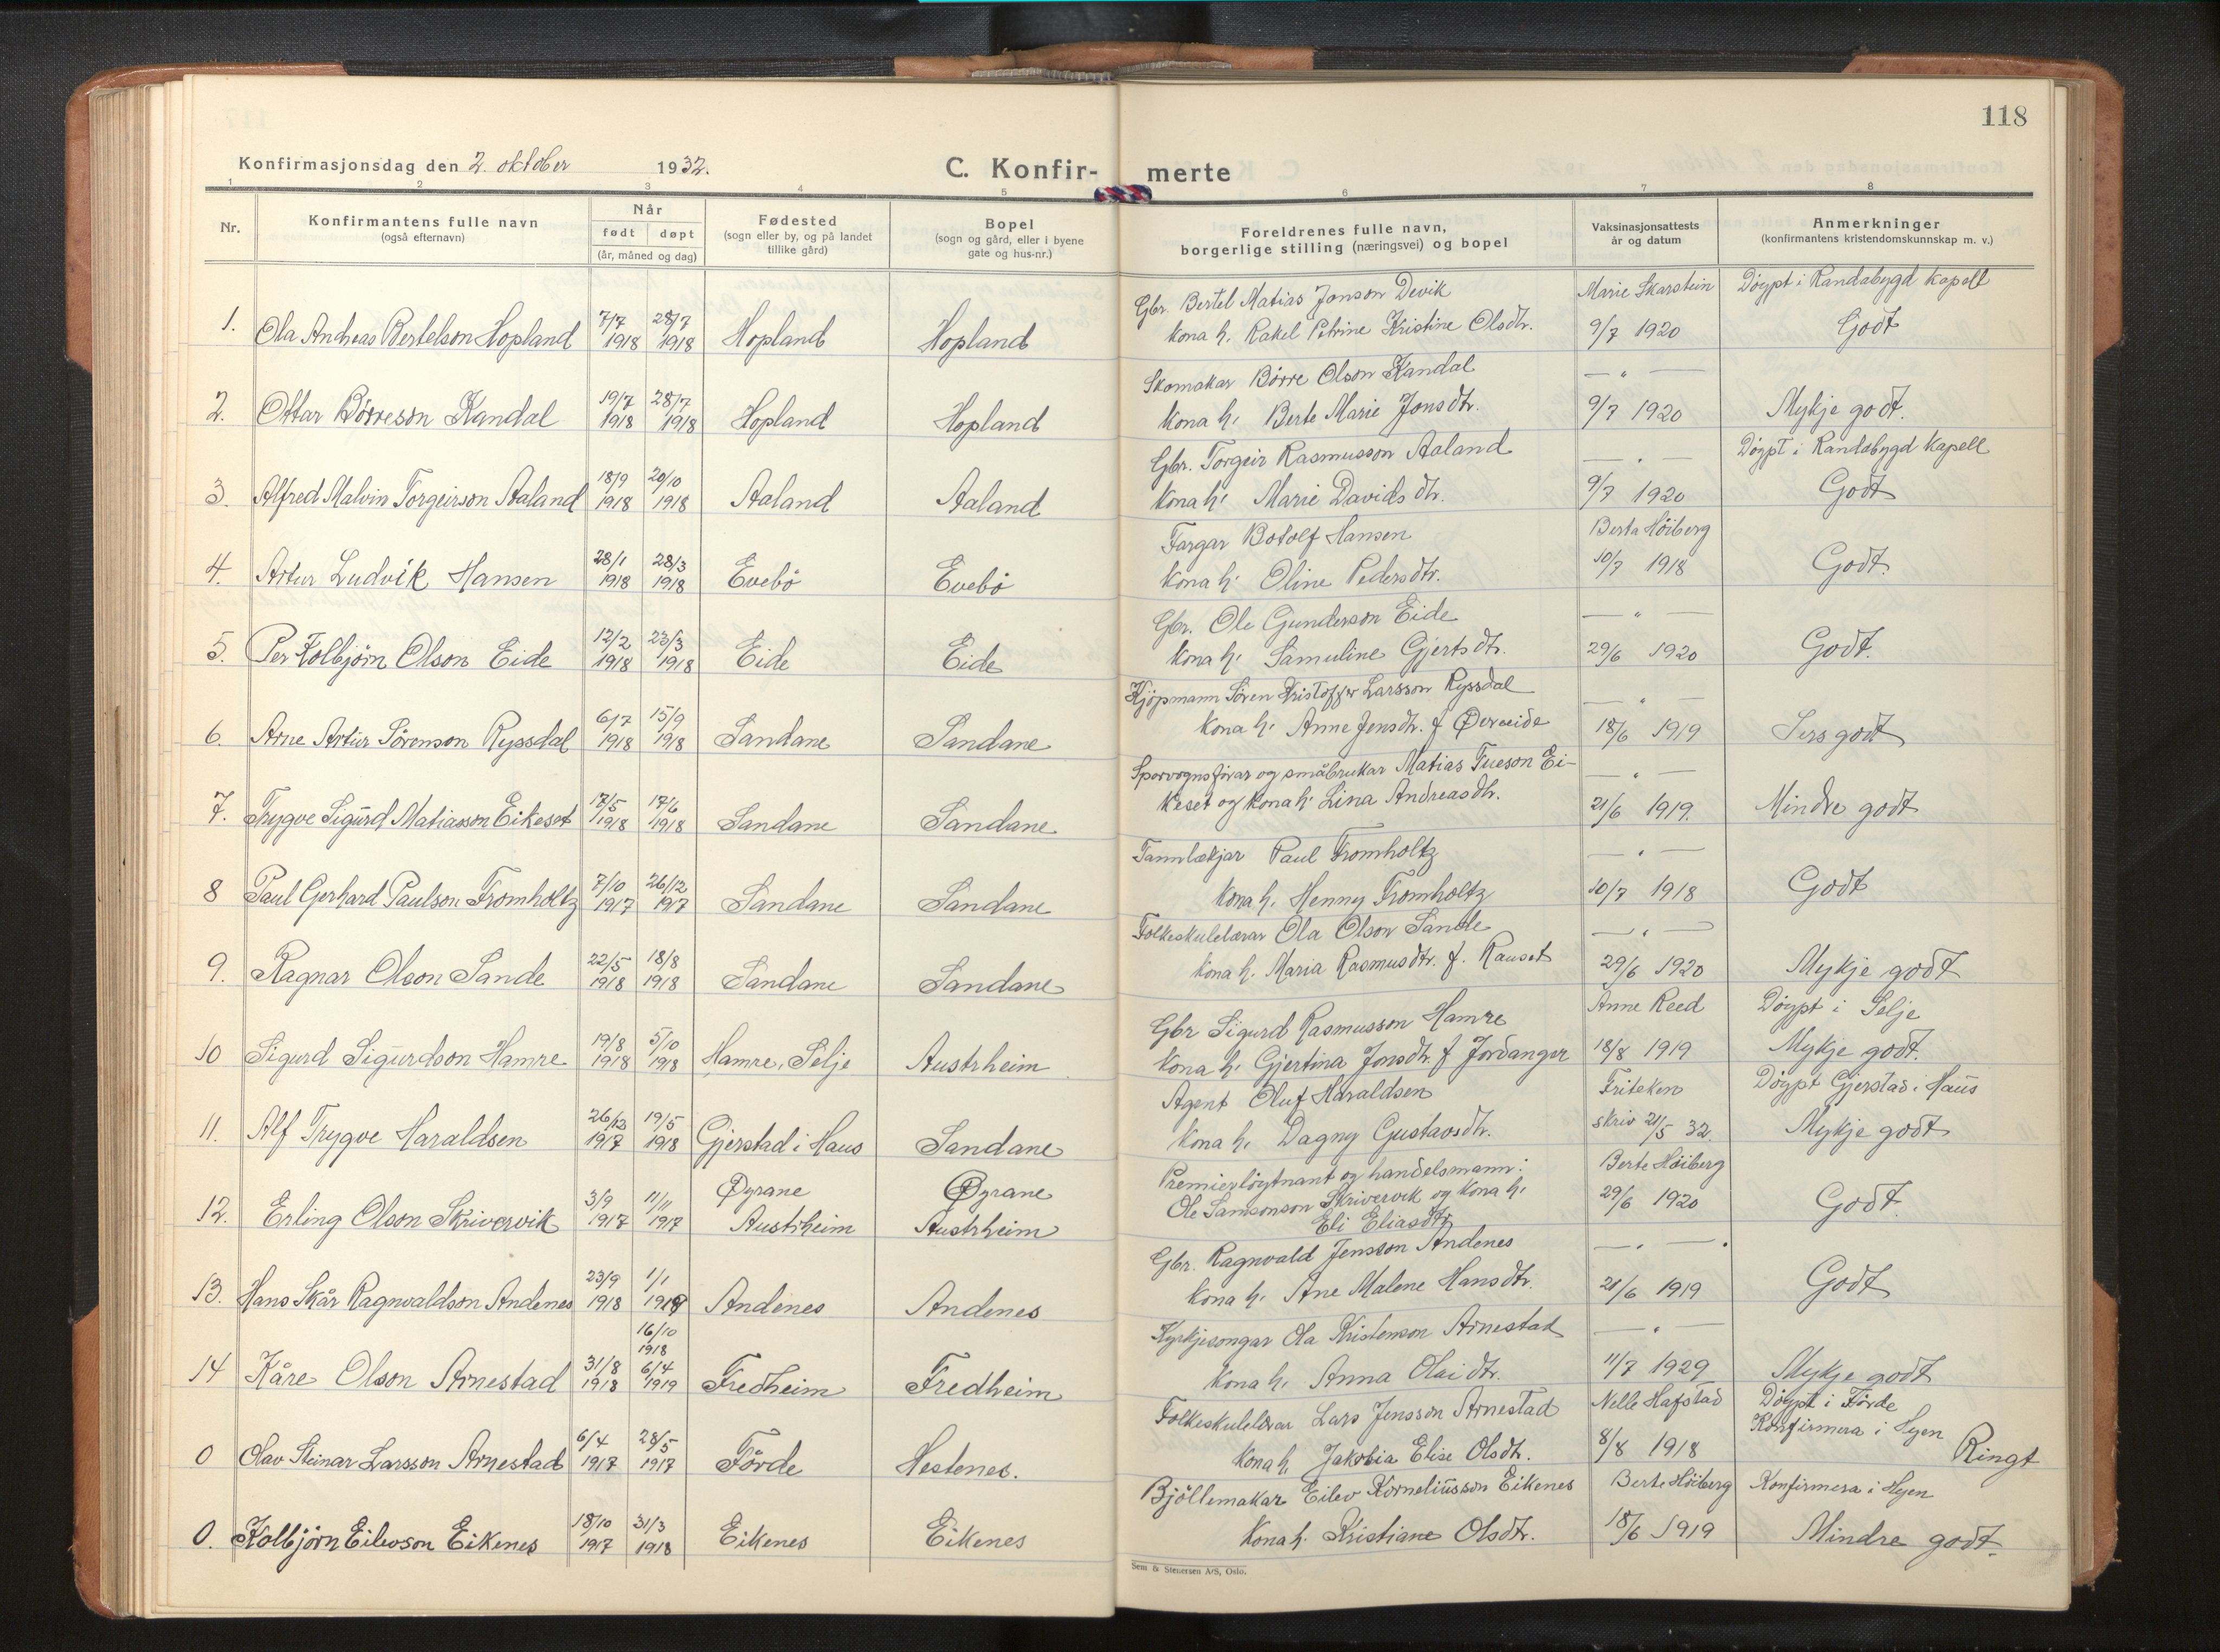 118
Konfirmasjonsdag den 2. oktober 1932.
C. Konfir-
merte
1 2 3 4 5 6 7 8
Nr.
Konfirmantens fulle navn
(også efternavn)
Når
født døpt
(år, måned og dag)
Fødested
(sogn eller by, og på landet
tillike gård)
Bopel
(sogn og gård, eller i byene
gate og hus-nr.)
Foreldrenes fulle navn,
borgerlige stilling (næringsvei) og bopel
Vaksinasjonsattests
år og datum
Anmerkninger
(konfirmantens kristendomskunnskap m. v.)
Gbr. Bertel Matias Jonson Devik Marie Skarstein Döypt i Randabygd kapell
1. Ola Andreas Bertelson Hopland 7/7 1918 28/7 1918 Hopland Hopland
kona h. Rakel Petrine Kristine Olsdtr. 9/7 1920 Godt
Skomakar Börre Olson Kandal — " —
2. Ottar Börreson Kandal 19/7 1918 28/7 1918 Hopland Hopland
kona h. Berte Marie Jonsdtr. 9/7 1920 Mykje godt.
Gbr. Torgeir Rasmusson Aaland — " — Döypt i Randabygd kapell
3. Alfred Malvin Torgeirson Aaland 18/9 1918 20/10 1918 Aaland Aaland
kona h. Marie Davidsdtr. 9/7 1920 Godt
Fargar Botolf Hansen Berta Höiberg
4. Artur Ludvik Hansen 28/1 1918 28/3 1918 Evebö Evebö
kona h. Oline Pedersdtr. 10/7 1918 Godt.
Gbr. Ole Gunderson Eide — " —
5. Per Kolbjörn Olson Eide 12/2 1918 23/3 1918 Eide Eide
kona h. Samuline Gjertsdtr. 29/6 1920 Godt.
Kjöpmann Sören Kristoffer Larsson Ryssdal — " —
6. Arne Artur Sörenson Ryssdal 6/7 1918 15/9 1918 Sandane Sandane
kona h. Anne Jensdtr. f Övreeide 18/6 1919 Sers godt
Sporvognsförar og småbrukar Matias Tueson Ei- — " —
7. Trygve Sigurd Matiasson Eikeset 17/5 1918 17/6 1918 Sandane Sandane
keset og kona h. Lina Andreasdtr. 21/6 1919. Mindre godt
Tannlækjar Paul Fromholtz — " —
8 Paul Gerhard Paulson Fromholtz 7/10 1917 26/12 1917 Sandane Sandane
kona h. Henny Fromholtz 10/7 1918 Godt
Folkeskulelærar Ola Olson Sande — " —
9. Ragnar Olson Sande 22/5 1918 18/8 1918 Sandane Sandane
kona h. Maria Rasmusdtr. f. Rauset 29/6 1920 Mykje godt
Gbr Sigurd Rasmusson Hamre Anne Reed Döypt i Selje
10 Sigurd Sigurdson Hamre 19/8 1918 5/10 1918 Hamre, Selje Austrheim
kona h. Gjertina Jonsdtr. f Jordanger 18/8 1919 Mykje godt.
Agent Oluf Haraldsen Friteken Döypt Gjerstad i Haus
11. Alf Trygve Haraldsen 26/12 1917 19/5 1918 Gjerstad i Haus Sandane
kona h. Dagny Gustavsdtr. skriv 21/5 32. Mykje godt
Premierlöytnant og handelsmann: Berte Höiberg
12. Erling Olson Skrivervik 3/9 1917 11/11 1917 Öyrane Austrheim Öyrane Austrheim
Ole Samsonson Skrivervik og kona h. 29/6 1920 Godt.
Eli Eliasdtr
Gbr. Ragnvald Jensson Andenes — " —
13. Hans Skår Ragnvaldson Andenes 23/9 1918 1/1 1919 Andenes Andenes
kona h. Ane Malene Hansdtr. 21/6 1919 Godt
Kyrkjesongar Ola Kristenson Arnestad — " —
14 Kåre Olson Arnestad 31/8 1918 16/10 1918 6/4 1919 Fredheim Fredheim
kona h. Anna Olaidtr. 11/7 1929 Mykje godt
Folkeskulelærar Lars Jensson Arnestad Nelle Hafstad Döypt i Förde
0 Olav Steinar Larsson Arnestad 6/4 1917 28/5 1917 Förde Hestenes.
kona h. Jakobia Elise Olsdtr. 8/8 1918 Konfirmera i Hyen Ringt
Bjöllemakar Eilev Korneliusson Eikenes Berte Höiberg Konfirmera i Hyen
0. Kolbjörn Eilevson Eikenes 18/10 1917 31/3 1918 Eikenes Eikenes
kona h. Kristiane Olsdtr. 18/6 1919 Mindre godt.
Sem & Stenersen A/S, Oslo.